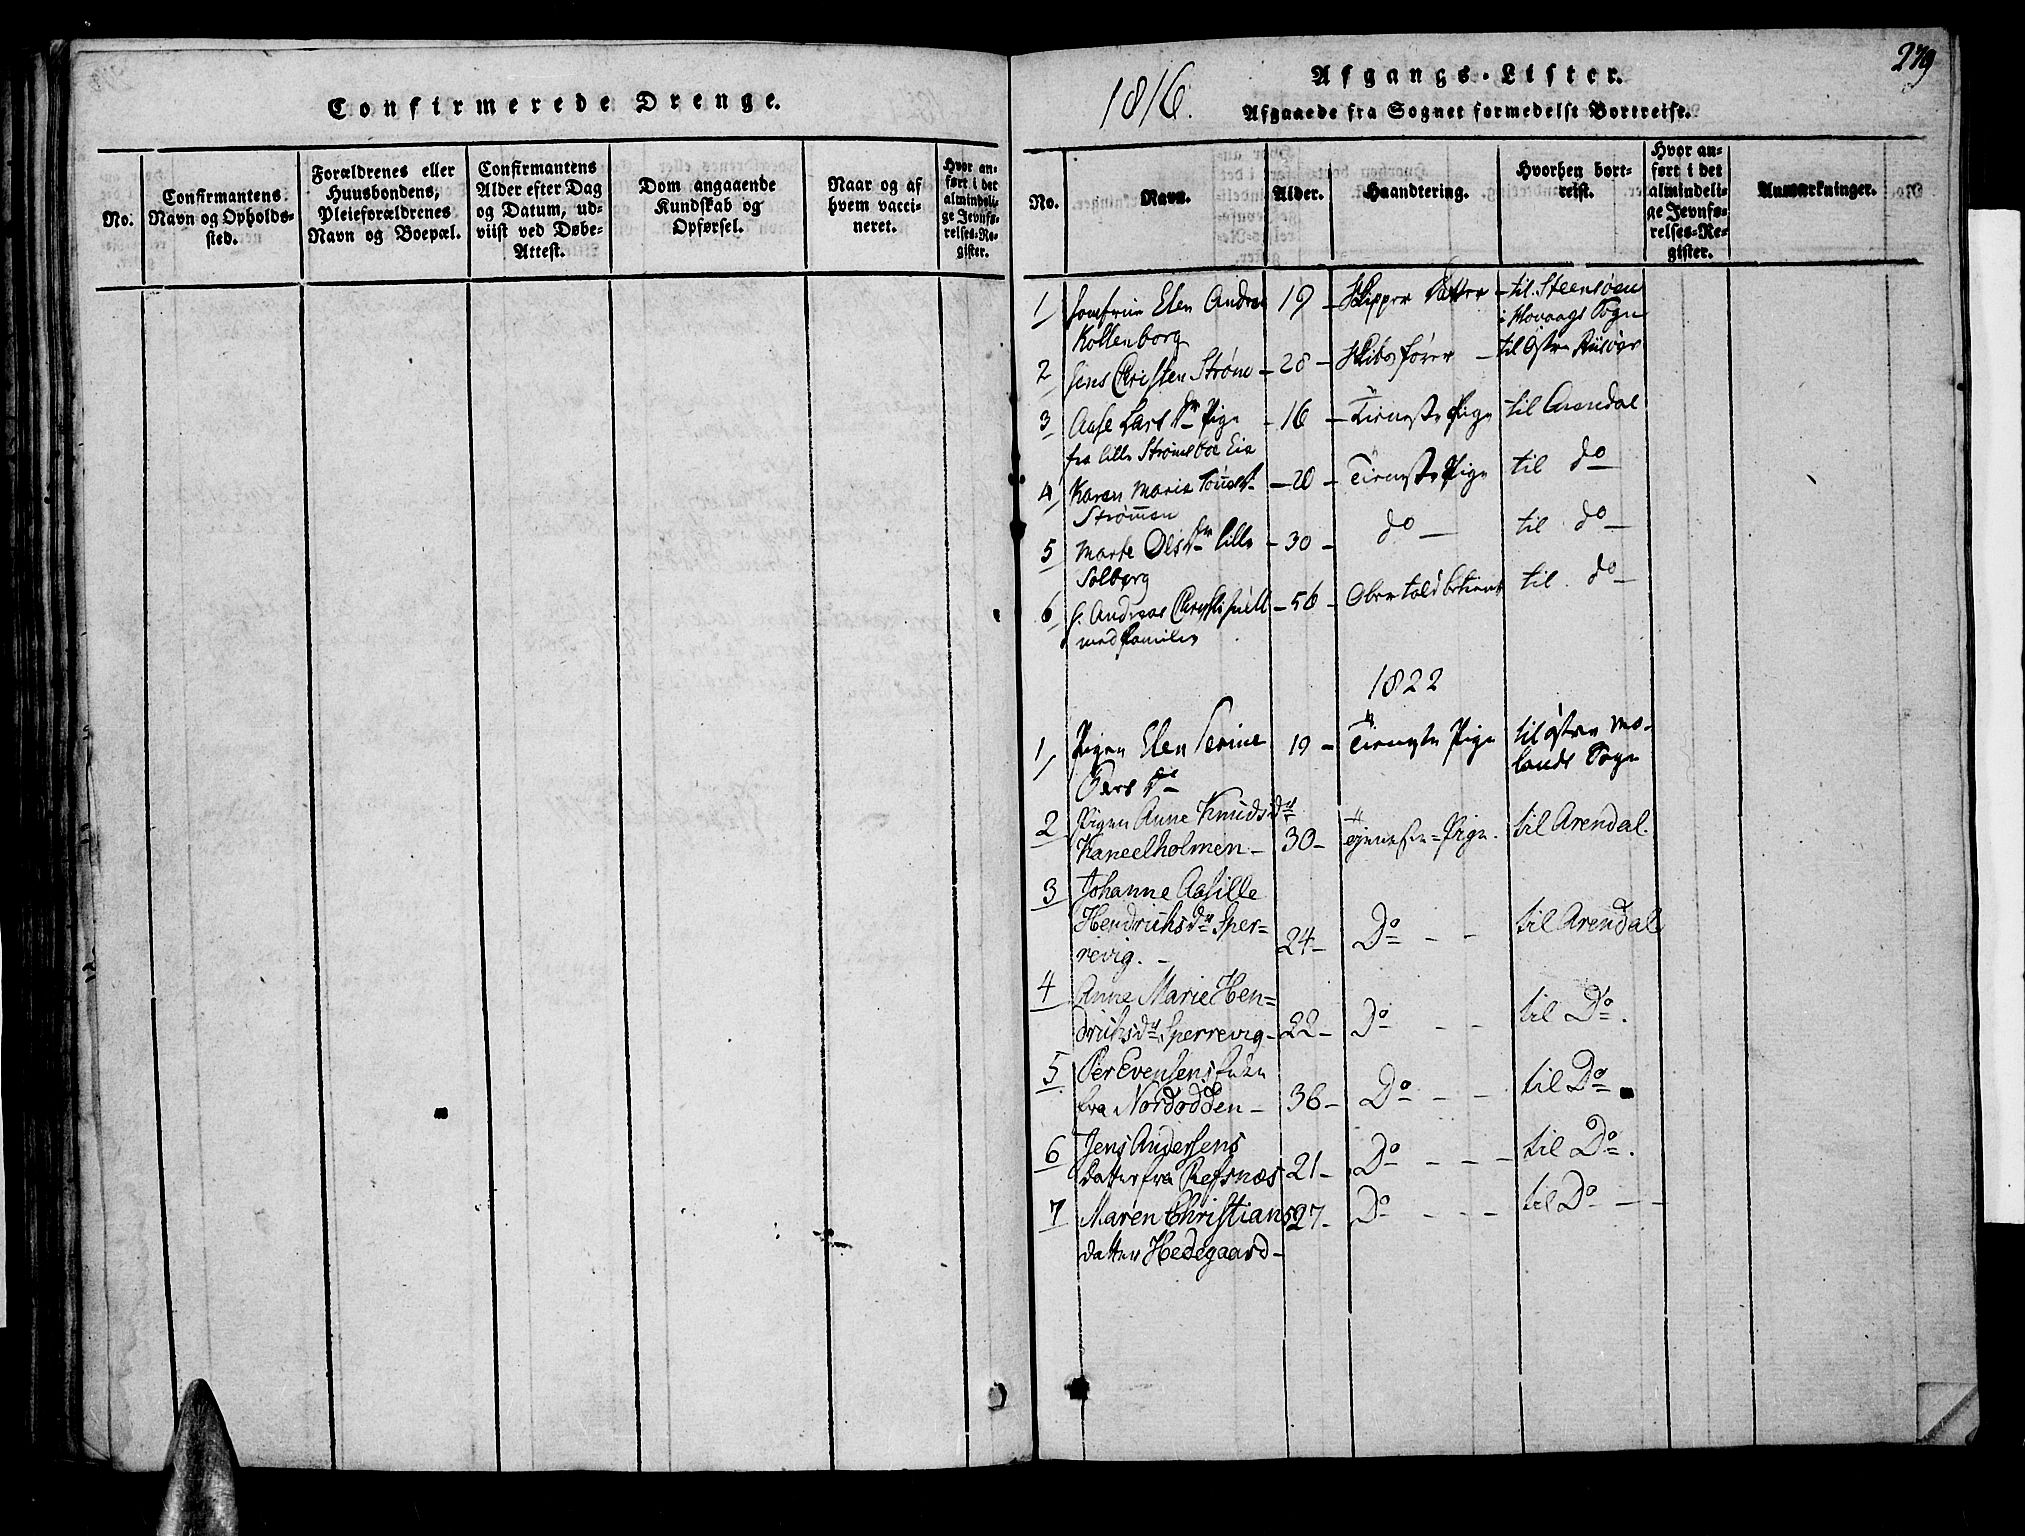 Confirmerede Drenge.
No.
Confirmantens Navn og Opholds-
sted.
Forældrenes eller
Huusbondens,
Pleieforældrenes
Navn og Boepæl.
Confirmantens
Alder efter Dag
og Datum, ud-
viist ved Døbe-
Attest.
Dom angaaende
Kundskab og
Opførsel.
Naar og af
hvem vacci-
neret.
Hvor an-
ført i det
almindeli-
ge Jevnfø-
relses-Re-
gister.
279
1816.
Afgangs-Lister.
Afgaaede fra Sognet formedelst Bortreise.
No.
Navn.
Alder.
Haandtering.
Hvorhen bort-
reist.
Hvor an-
ført i det
almindeli-
ge Jevnfø-
relses-Re-
gister.
Anmærkninger.
1 Jomfrue Elen Andrea 19 - Skipper Datter - til Steensøen
Kollenborg i Hovaags Sogn
2 Jens Christen Strøm - 28 - Skibsfører - til Østre Riisøer
3 Aase Lars Dr Pige - 16 - Tieneste Pige til Arendal
fra lille Strømsboe Eie
4 Karen Marie - 20 - Tieneste Pige til do
Strømmen
5 Marte Olsdr lille - 30 - do - til do
Solberg
6 Andreas - 56 - til do
med Familie
1822
1 Pigen Elen Serine 19 - Tieneste Pige til østre Mo-
Pers Dr lands Sogn
2 Pigen Anne Knudsdr
Kaneelholmen - 30 - Tjeneste-Pige. til Arendal.
3 Johanne Aasille
Hendrichsdr Sper-
revig. - 24 - Do - - til Arendal
4 Anne Marie Hen-
drichsdr Sperrevig - 22 - Do - - til Do.
5 Per Evensens
fra Nordodden - 36 - Do - - til Do
6 Jens Andersens
Datter fra Refsnæs 21 - Do - - - til Do.
7 Maren Christians 27 - Do - - - til Do - -
datter Hedegaard -